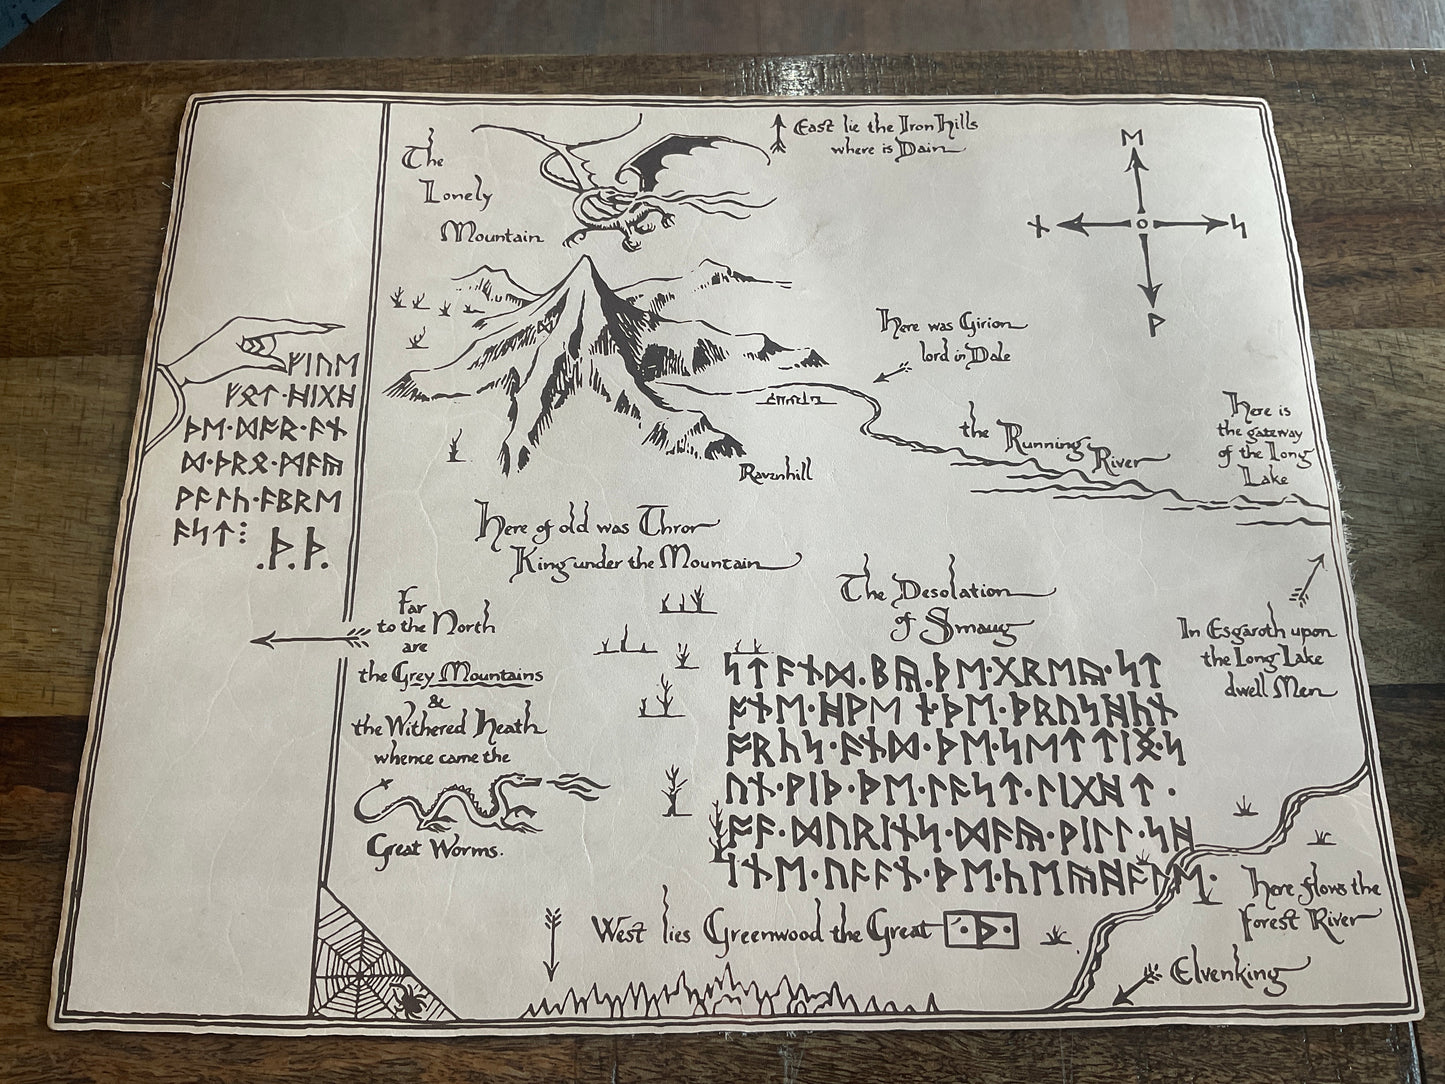 The
Lonely
Mountain
East lie the Iron Hills
where is Dain
ᛖ
ᚾ
ᛋ
ᚹ
ᚠᛁᚢᛖ
ᚠᚩᛏ·ᚻᛁᚷᚻ
ᚦᛖ·ᛞᚩᚱ·ᚪᚾ
ᛞ·ᚦᚱᛟ·ᛗᚪᚣ
ᚹᚪᛚᚳ·ᚪᛒᚱᛖ
ᚪᛋᛏ⁝
.ᚦ.ᚦ.
Here was Girion
lord in Dale
the Running River
Here is
the gateway
of the Long
Lake
Ravenhill
Here of old was Thror
King under the Mountain
The Desolation
of Smaug
In Esgaroth upon
the Long Lake
dwell Men
Far
to the North
are
the Grey Mountains
&
the Withered Heath
whence came the
Great Worms.
ᛋᛏᚪᚾᛞ·ᛒᚣ·ᚦᛖ·ᚷᚱᛖᚣ·ᛋᛏ
ᚩᚾᛖ·ᚻᚹᛖᚾ·ᚦᛖ·ᚦᚱᚢᛋᚻ·ᚳᚾ
ᚩᚳᛋ·ᚪᚾᛞ·ᚦᛖ·ᛋᛖᛏᛏᛁᛝ·ᛋ
ᚢᚾ·ᚹᛁᚦ·ᚦᛖ·ᛚᚪᛋᛏ·ᛚᛁᚷᚻᛏ·
ᚩᚠ·ᛞᚢᚱᛁᚾᛋ·ᛞᚪᚣ·ᚹᛁᛚᛚ·ᛋᚻ
ᛁᚾᛖ·ᚢᛈᚩᚾ·ᚦᛖ·ᚳᛖᚣᚻᚩᛚᛖ·
West lies Greenwood the Great ·ᚦ·
Here flows the
Forest River
Elvenking